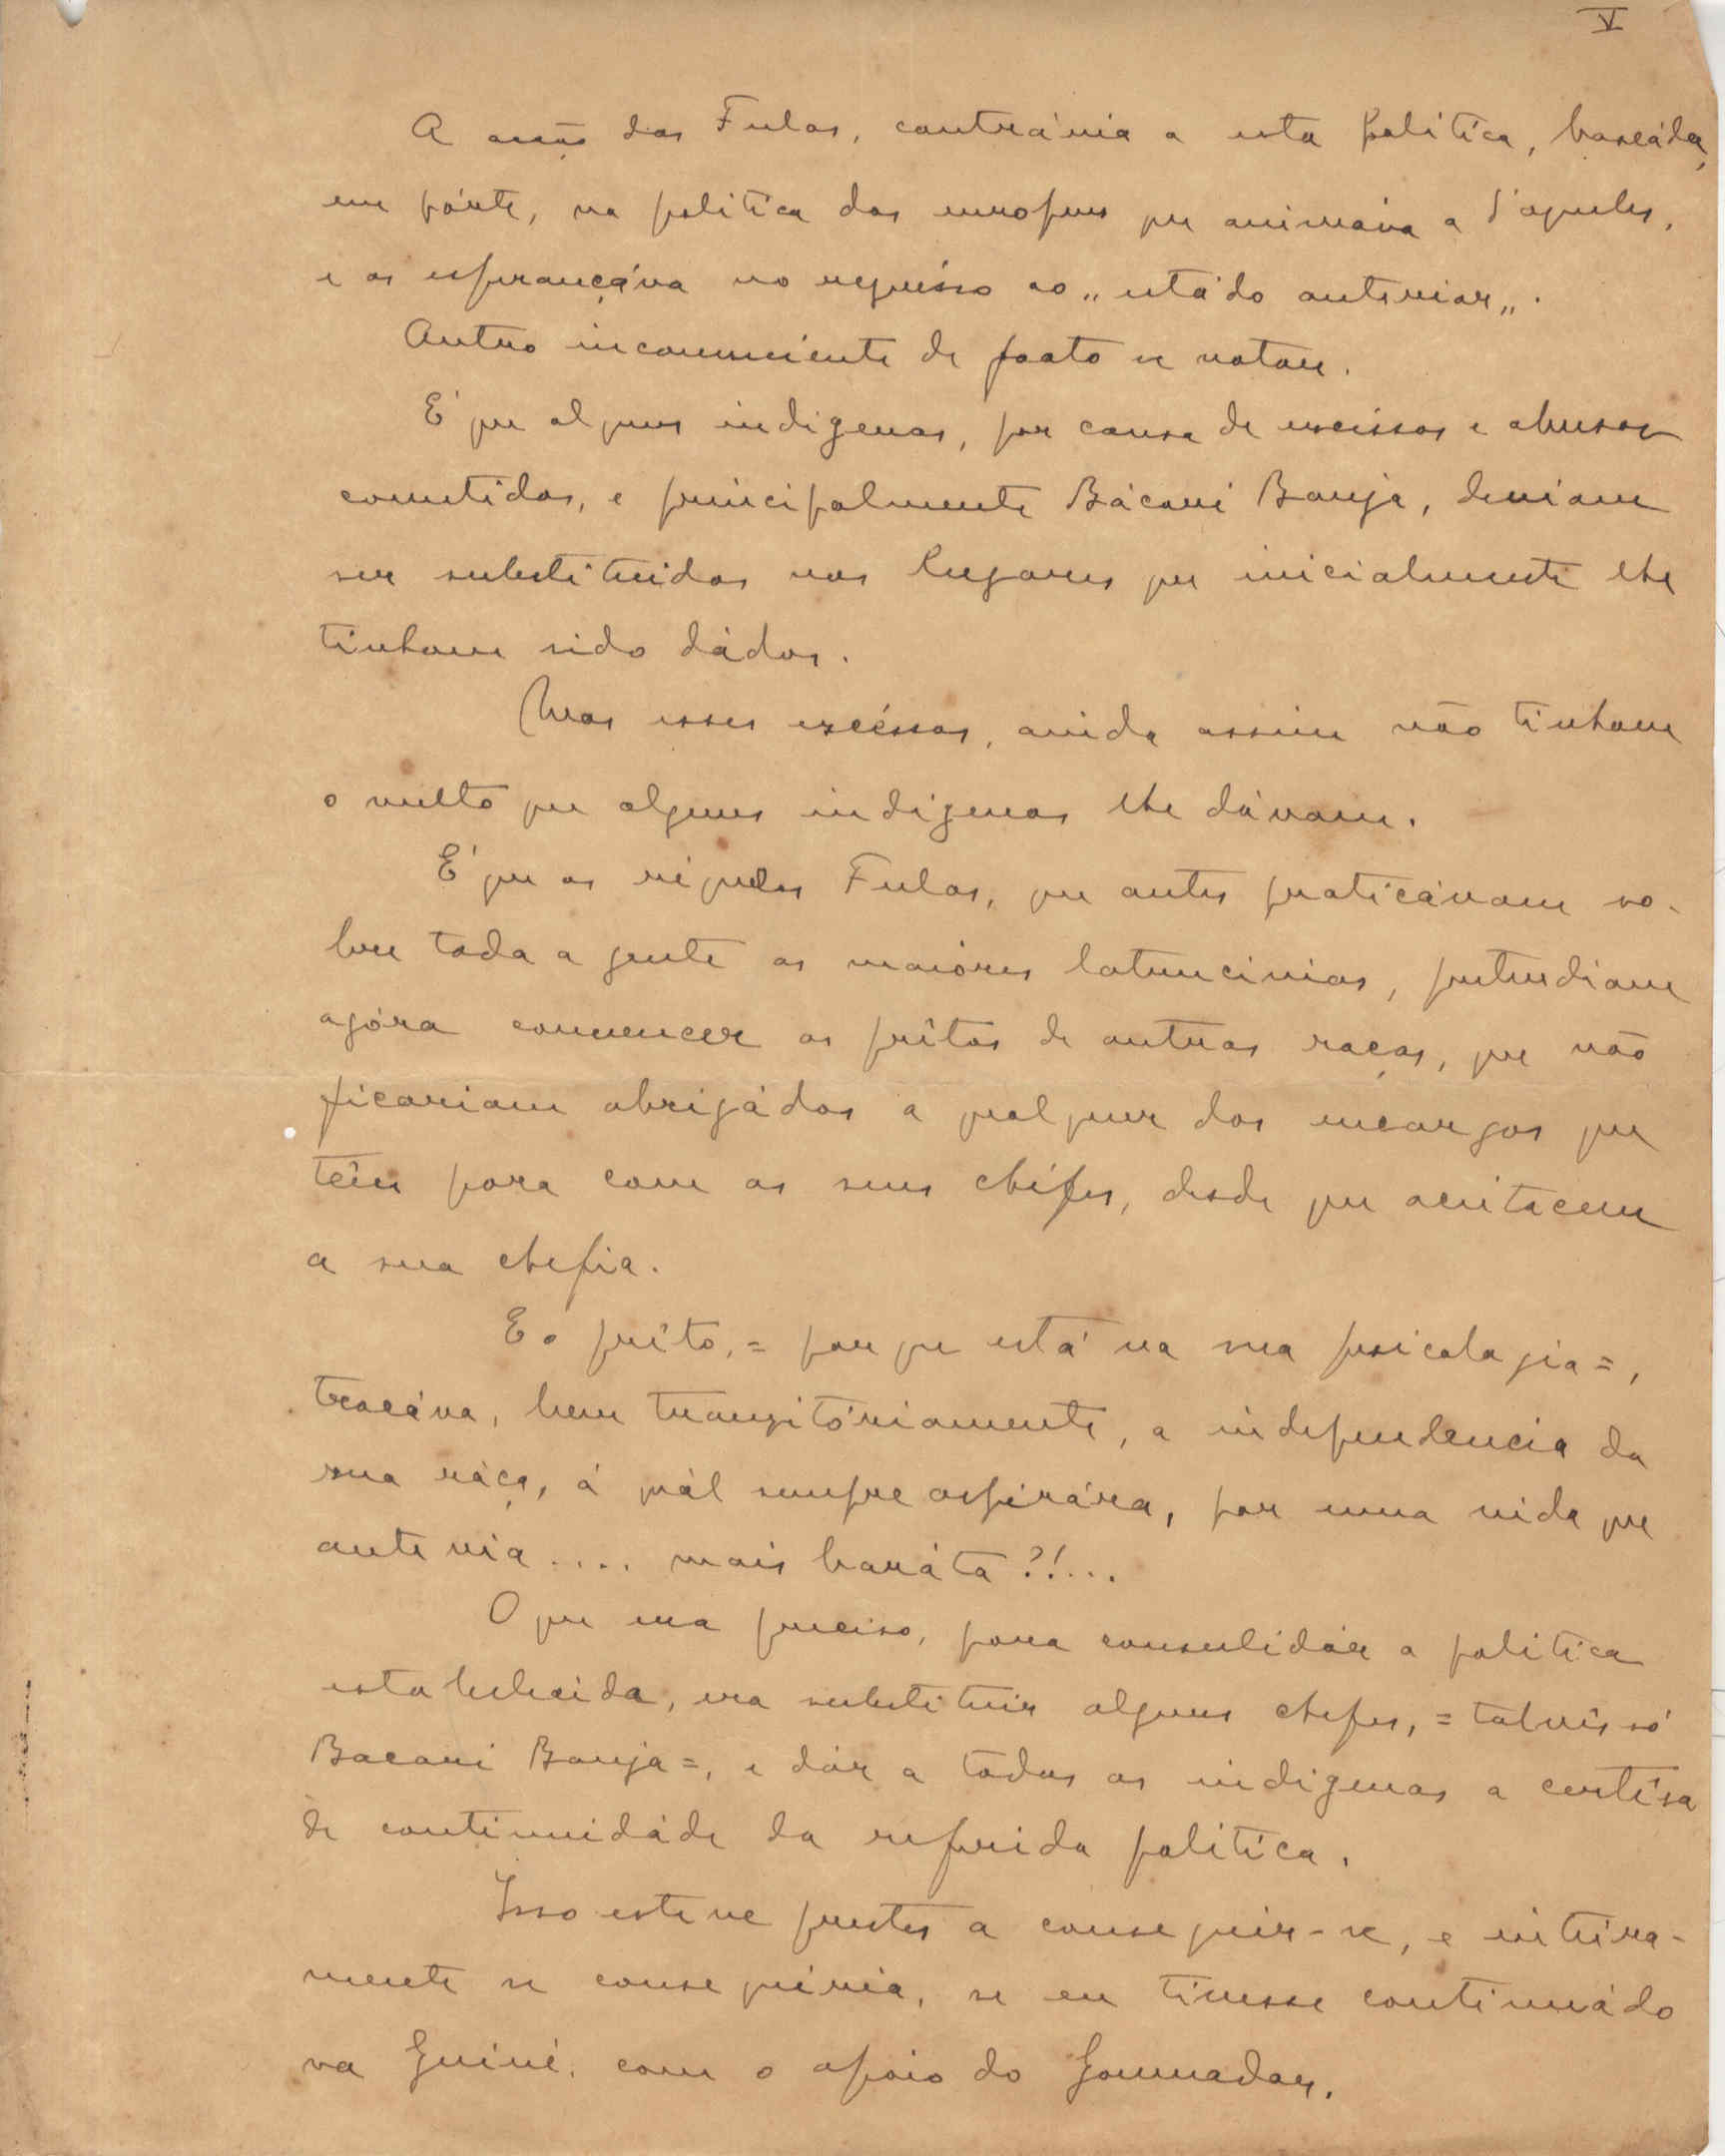 V
A acção dos Fulas, contrária a esta política, baseáda,
em párte, na politica dos europeus que animáva a d'aqueles,
e os esperançáva no regrésso ao „estádo anterior„.
Outro inconveniente de facto se notou.
É que alguns indigenas, por causa de excéssos e abusos
cometidos, e principalmente Bácari Banja, deviam
ser substituidos nos lugares que inicialmente lhe
tinham sido dádos.
Mas esses excéssos, ainda assim não tinham
o vulto que alguns indígenas lhe dávam.
É que os régulos Fulas, que antes praticávam so-
bre toda a gente os maióres latrucinios, pretendiam
agóra convencer os prêtos de outras raças, que não
ficariam obrigádos a qualquer dos encargos que
têm para com os seus chéfes, desde que aceitacem
a sua chefia.
E o prêto, = porque está na sua psicologia =,
trocáva, bem tranzitóriamente, a independencia da
sua ráça, á quál sempre aspirára, por uma vida que
antevia .... mais baráta ?!...
O que era preciso, para consulidár a politica
estabelecida, era substituir alguns chefes, = talvês só
Bacari Banja =, e dár a todos os indigenas a certêsa
de continuidáde da referida política.
Isso esteve prestes a conseguir-se, e inteira-
mente se conseguiria, se eu tivesse continuádo
na Guiné, com o apoio do Governador.